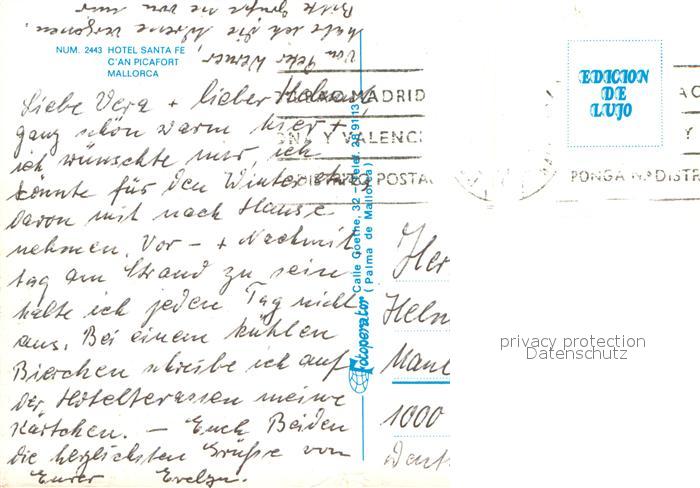 NUM. 2443 HOTEL SANTA FE
C'AN PICAFORT
MALLORCA
Liebe Vera + lieber Helmut,
ganz schön warm hier +
ich wünschte mir, ich
könnte für den Winter etwas
davon mit nach Hause
nehmen. Vor- + Nachmit
tag am Strand zu sein
halte ich jeden Tag nicht
aus. Bei einem kühlen
Bierchen schreibe ich auf
der Hotelterrassen meine
Kärtchen. - Euch Beiden
die herzlichsten Grüße von
Eurer Evelyn.
Von Peter Werner,
habe ich die Adresse vergessen.
Bitte Grüße sie von mir
Fotoperator Calle Goethe, 32 - Telef. 28 91 13
(Palma de Mallorca)
EDICION
DE
LUJO
MADRID
Y VALENCI
POSTAL
PONGA Nº DISTR
Her
Helm
1000
Deut
privacy protection
Datenschutz